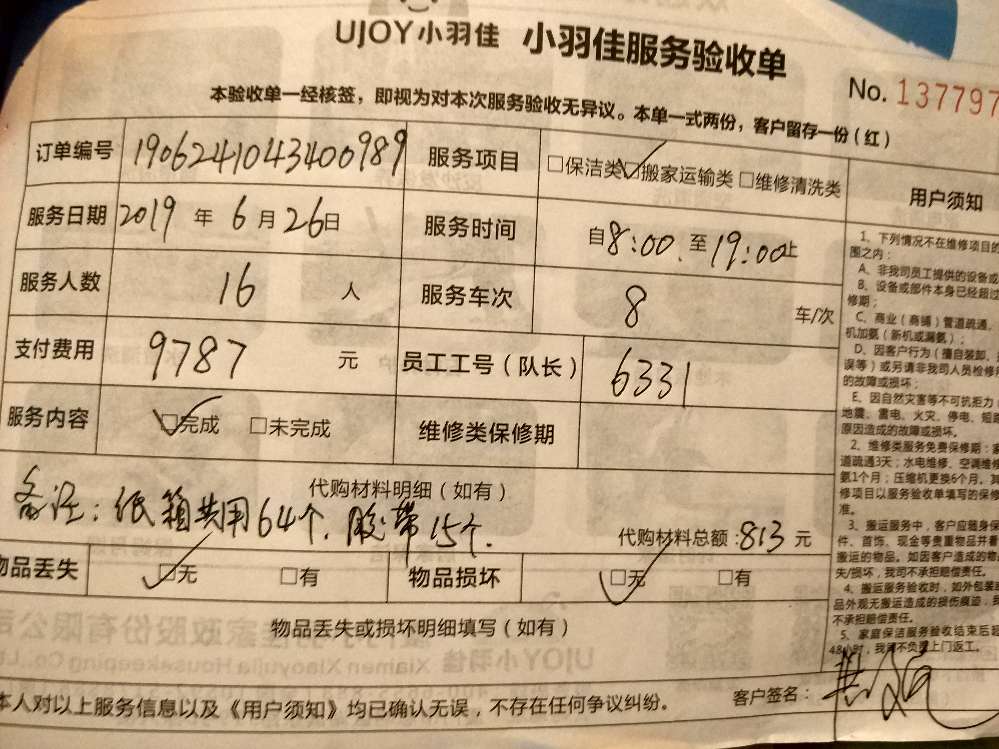 UJOY小羽佳 小羽佳服务验收单
No. 137797
本验收单一经核签，即视为对本次服务验收无异议。本单一式两份，客户留存一份（红）
订单编号 1906241043400989 服务项目 □保洁类 ☑搬家运输类 □维修清洗类
服务日期 2019 年 6 月 26 日 服务时间 自 8:00 至 19:00 止
服务人数 16 人 服务车次 8 车/次
支付费用 9787 元 员工工号（队长） 6331
服务内容 ☑完成 □未完成 维修类保修期
代购材料明细（如有）
备注：纸箱共用64个，胶带15个.
代购材料总额：813 元
物品丢失 ☑无 □有 物品损坏 ☑无 □有
物品丢失或损坏明细填写（如有）
本人对以上服务信息以及《用户须知》均已确认无误，不存在任何争议纠纷。
客户签名：
用户须知
1、下列情况不在维修项目的
围之内：
A、非我司员工提供的设备或
B、设备或部件本身已经超过
修期；
C、商业（商铺）管道疏通、
机加氨（新机或漏氨）；
D、因客户行为（擅自装卸、
误等）或另请非我司人员检修
的故障或损坏；
E、因自然灾害等不可抗拒力
地震、雷电、火灾、停电、短
原因造成的故障或损坏。
2、维修类服务免费保修期：
道疏通3天；水电维修、空调维
氨1个月；压缩机更换6个月。
修项目以服务验收单填写的保修
准。
3、搬运服务中，客户应随身保
件、首饰、现金等贵重物品并看
搬运的物品。如因客户造成的物
失/损坏，我司不承担赔偿责任。
4、搬运服务验收时，如外包装
品外观无搬运造成的损伤痕迹，
不承担赔偿责任。
5、家庭保洁服务验收结束后超
48小时，我司不负责上门返工。
UJOY小羽佳
家政股份有限公司
Xiamen Xiaoyujia Housekeeping Co., Lt